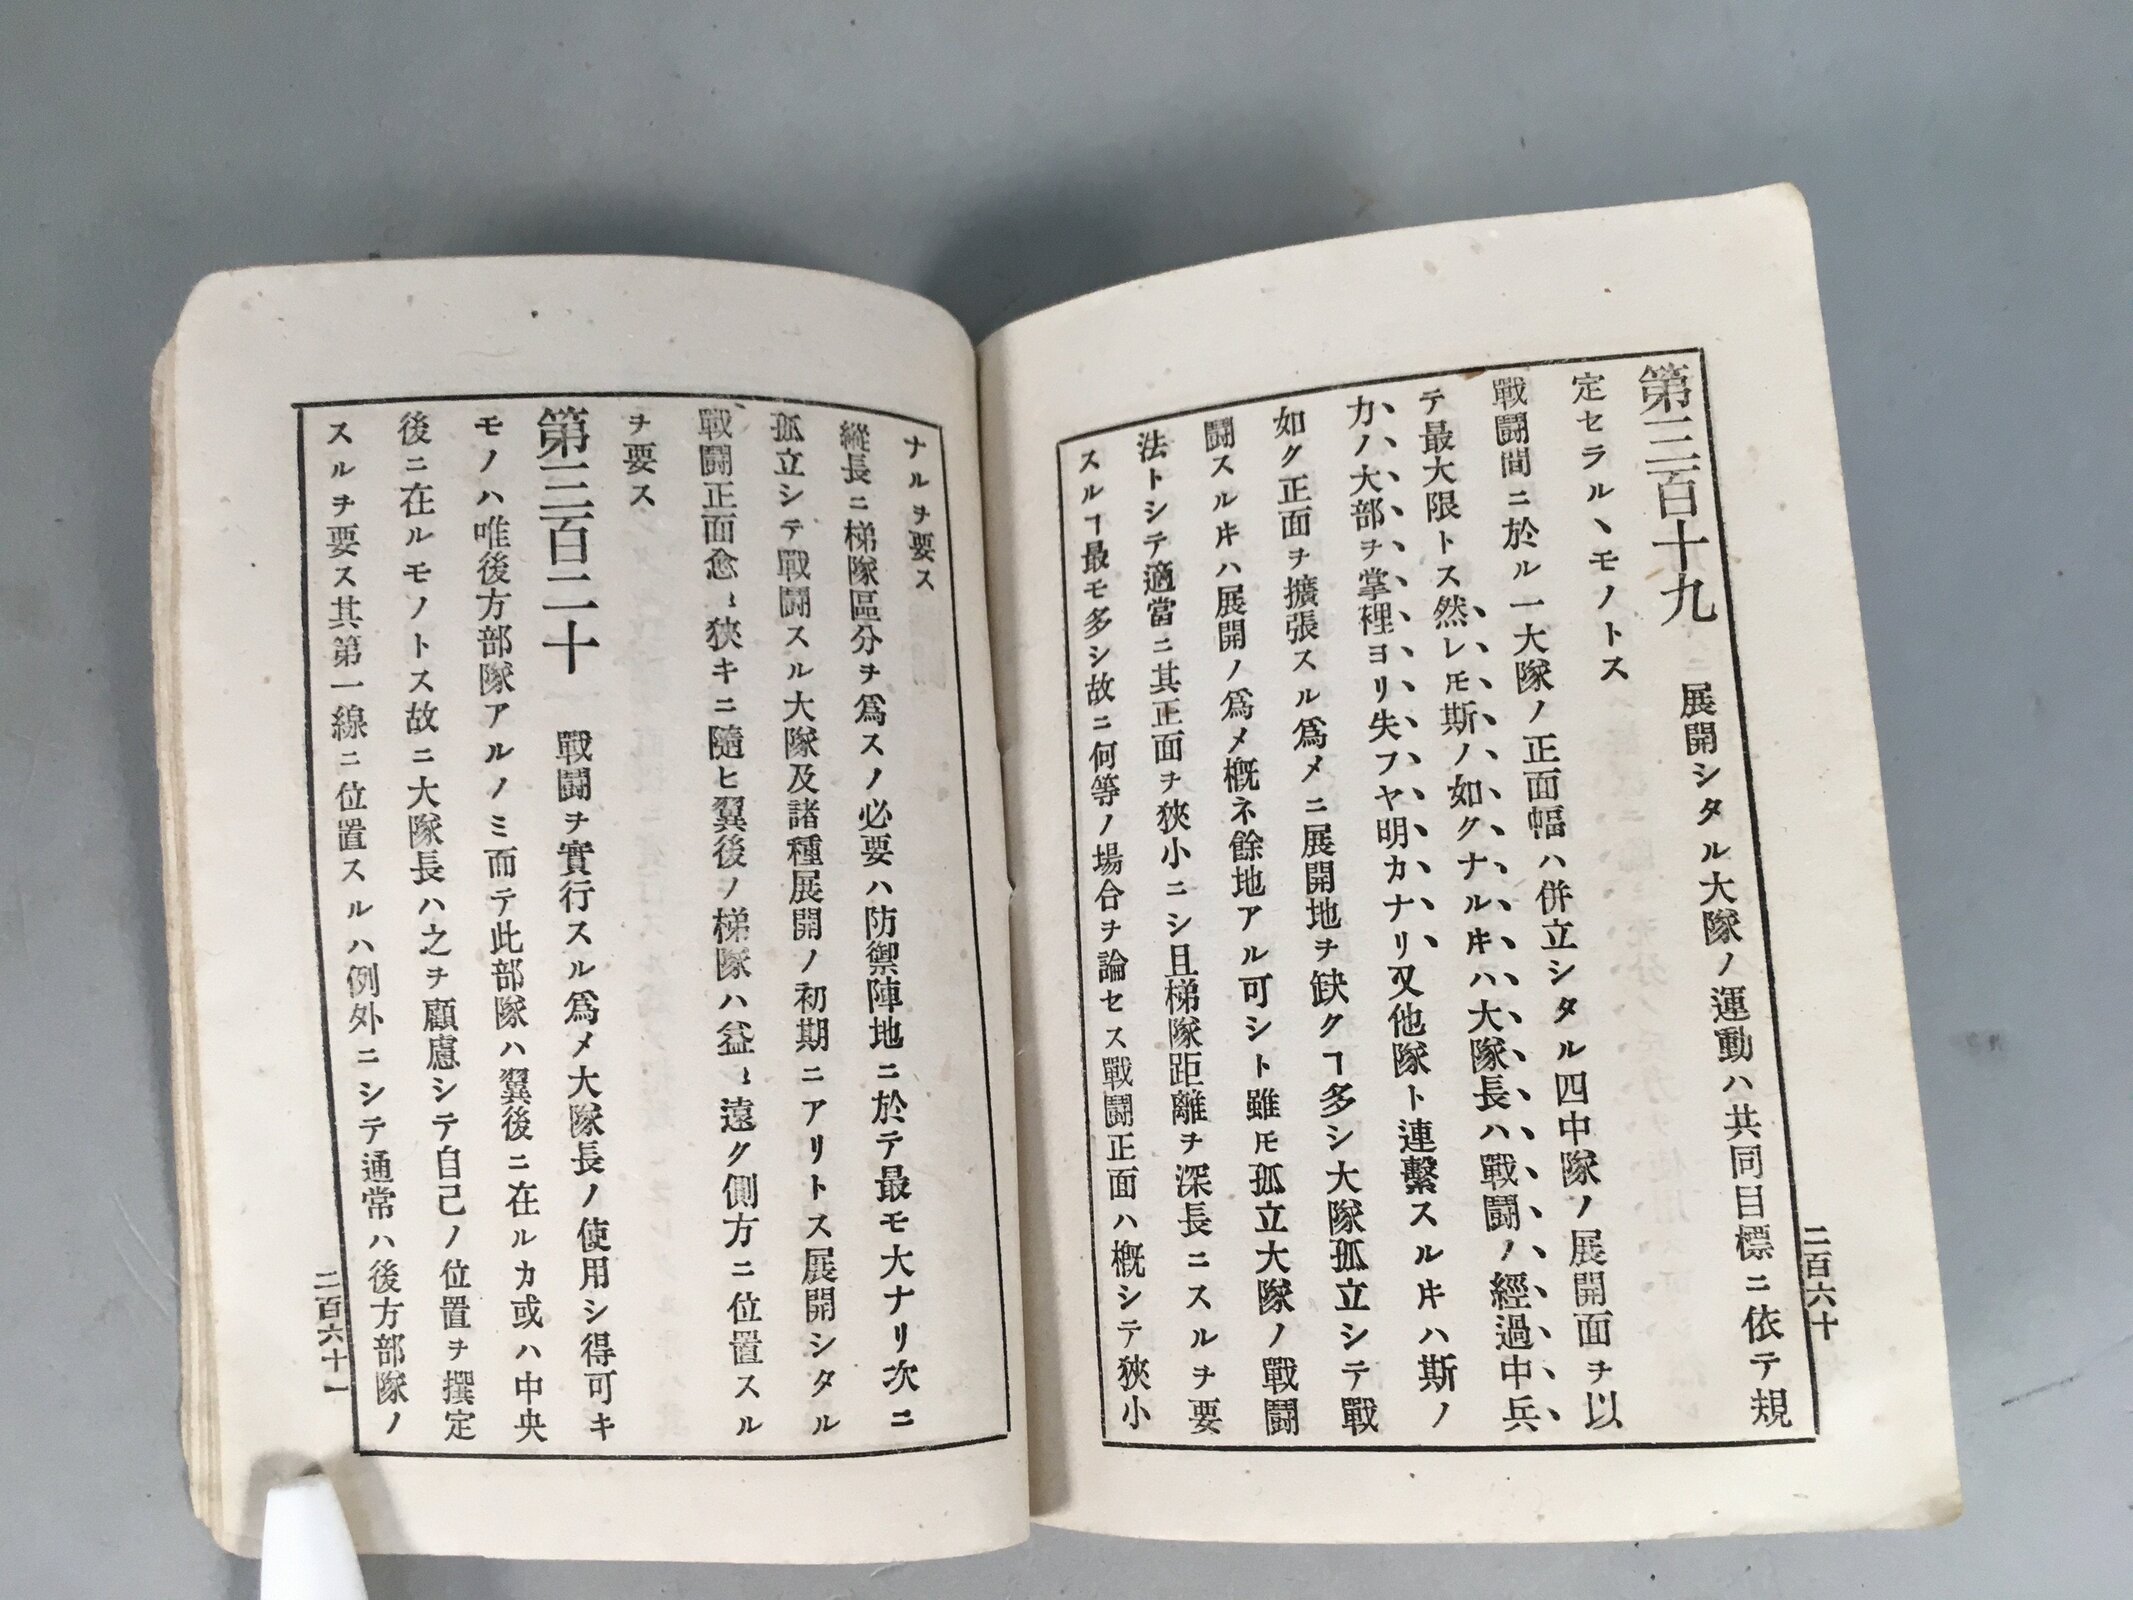 第三百十九　展開シタル大隊ノ運動ハ共同目標ニ依テ規
定セラルヽモノトス
戰鬪間ニ於ル一大隊ノ正面幅ハ併立シタル四中隊ノ展開面ヲ以
テ最大限トス然レㇳモ斯ノ如クナルキハ大隊長ハ戰鬪ノ經過中兵
力ノ大部ヲ掌裡ヨリ失フヤ明カナリ又他隊ト連繫スルキハ斯ノ
如ク正面ヲ擴張スル爲メニ展開地ヲ缺クヿ多シ大隊孤立シテ戰
鬪スルキハ展開ノ爲メ概ネ餘地アル可シト雖モ孤立大隊ノ戰鬪
法トシテ適當ニ其正面ヲ狹小ニシ且梯隊距離ヲ深長ニスルヲ要
スルヿ最モ多シ故ニ何等ノ場合ヲ論セス戰鬪正面ハ概シテ狹小
二百六十
ナルヲ要ス
縱長ニ梯隊區分ヲ爲スノ必要ハ防禦陣地ニ於テ最モ大ナリ次ニ
孤立シテ戰鬪スル大隊及諸種展開ノ初期ニアリトス展開シタル
戰鬪正面愈〻狹キニ隨ヒ翼後ノ梯隊ハ益〻遠ク側方ニ位置スル
ヲ要ス
第三百二十　戰鬪ヲ實行スル爲メ大隊長ノ使用シ得可キ
モノハ唯後方部隊アルノミ而テ此部隊ハ翼後ニ在ルカ或ハ中央
後ニ在ルモノトス故ニ大隊長ハ之ヲ顧慮シテ自己ノ位置ヲ撰定
スルヲ要ス其第一線ニ位置スルハ例外ニシテ通常ハ後方部隊ノ
二百六十一